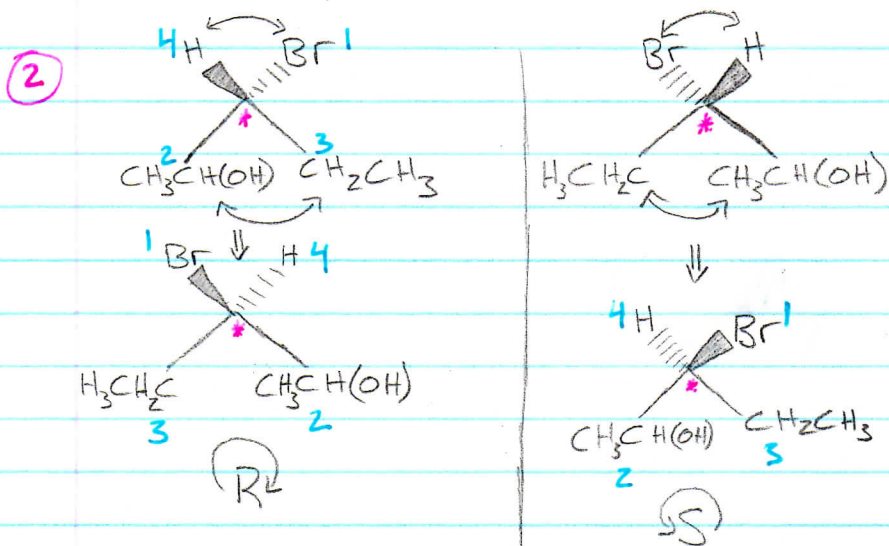 2
4 H Br 1
*
2 3
CH3CH(OH) CH2CH3
⇓
1 Br H 4
*
H3CH2C CH3CH(OH)
3 2
R
Br H
*
H3CH2C CH3CH(OH)
⇓
4 H Br 1
*
CH3CH(OH) CH2CH3
2 3
S